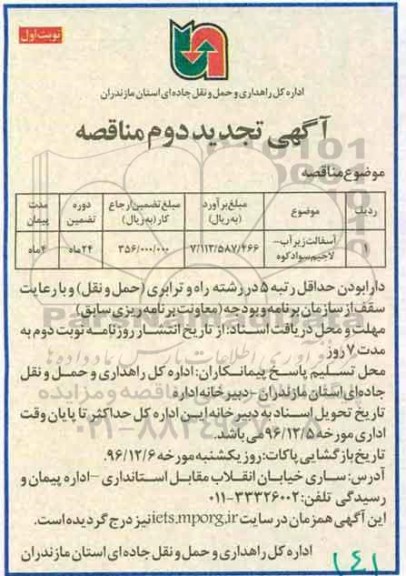 نوبت اول
اداره کل راهداری و حمل و نقل جاده ای استان مازندران
آگهی تجدید دوم مناقصه
موضوع مناقصه
ردیف موضوع مبلغ برآورد (به ریال) مبلغ تضمین ارجاع کار (به ریال) دوره تضمین مدت پیمان
۱ آسفالت زیرآب- لاجیم سوادکوه ۷/۱۱۳/۵۸۷/۲۶۶ ۳۵۶/۰۰۰/۰۰۰ ۲۴ماه ۴ماه
دارا بودن حداقل رتبه ۵ در رشته راه و ترابری (حمل و نقل) و با رعایت
سقف از سازمان برنامه و بودجه (معاونت برنامه ریزی سابق)
مهلت و محل دریافت اسناد: از تاریخ انتشار روزنامه نوبت دوم به
مدت ۷ روز
محل تسلیم پاسخ پیمانکاران: اداره کل راهداری و حمل و نقل
جاده ای استان مازندران -دبیرخانه اداره
تاریخ تحویل اسناد به دبیرخانه این اداره کل حداکثر تا پایان وقت
اداری مورخه ۹۶/۱۲/۵ می باشد.
تاریخ بازگشایی پاکات: روز یکشنبه مورخه ۹۶/۱۲/۶.
آدرس: ساری خیابان انقلاب مقابل استانداری -اداره پیمان و
رسیدگی تلفن: ۳۳۳۲۶۰۰۲-۰۱۱
این آگهی همزمان در سایت iets.mporg.ir نیز درج گردیده است.
اداره کل راهداری و حمل و نقل جاده ای استان مازندران
۱۴۱